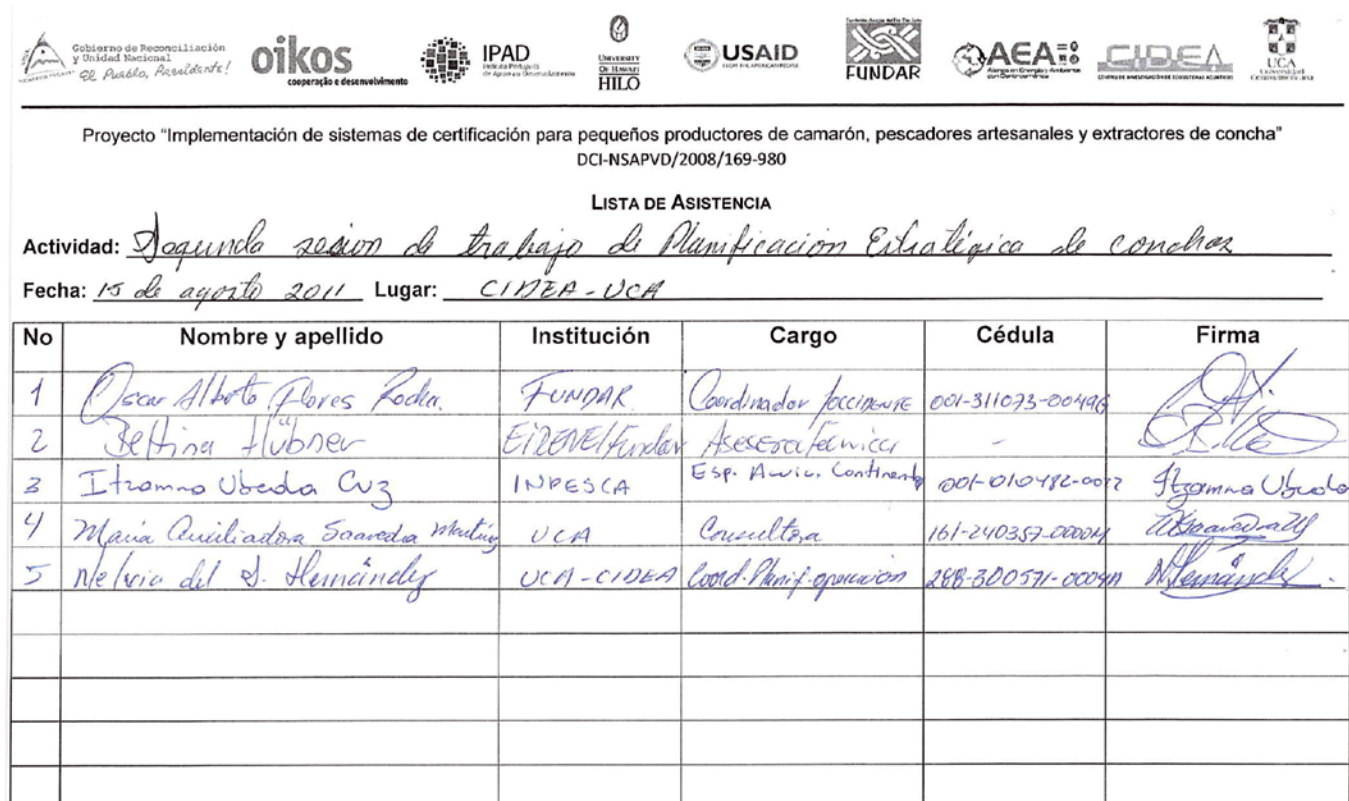 Gobierno de Reconciliación
y Unidad Nacional
El Pueblo, Presidente!
oikos
cooperação e desenvolvimento
IPAD
UNIVERSITY
OF HAWAI'I
HILO
USAID
FROM THE AMERICAN PEOPLE
FUNDAR
AEA
CIDEA
CENTRO DE INVESTIGACIÓN DE ECOSISTEMAS ACUÁTICOS
UCA
Universidad
Centroamericana
Proyecto “Implementación de sistemas de certificación para pequeños productores de camarón, pescadores artesanales y extractores de concha”
DCI-NSAPVD/2008/169-980
LISTA DE ASISTENCIA
Actividad: Segunda sesion de trabajo de Planificación Estratégica de conchas
Fecha: 15 de agosto 2011 Lugar: CIDEA-UCA
No Nombre y apellido Institución Cargo Cédula Firma
1 Oscar Alberto Flores Rocha. FUNDAR Coordinador /OCCIDENTE 001-311073-0049G
2 Bettina Hübner EIRENE/Fundar Asesora tecnica -
3 Itzamna Ubeda Cuz INPESCA Esp. Acuic. 001-010482- Itzamna Ubeda
4 María Auxiliadora Saavedra Martínez UCA Consultora 161-240357-0000M
5 Nelvia del S. Hernández UCA-CIDEA Coord. Planif. operacion 288-300571-0004A NHernández